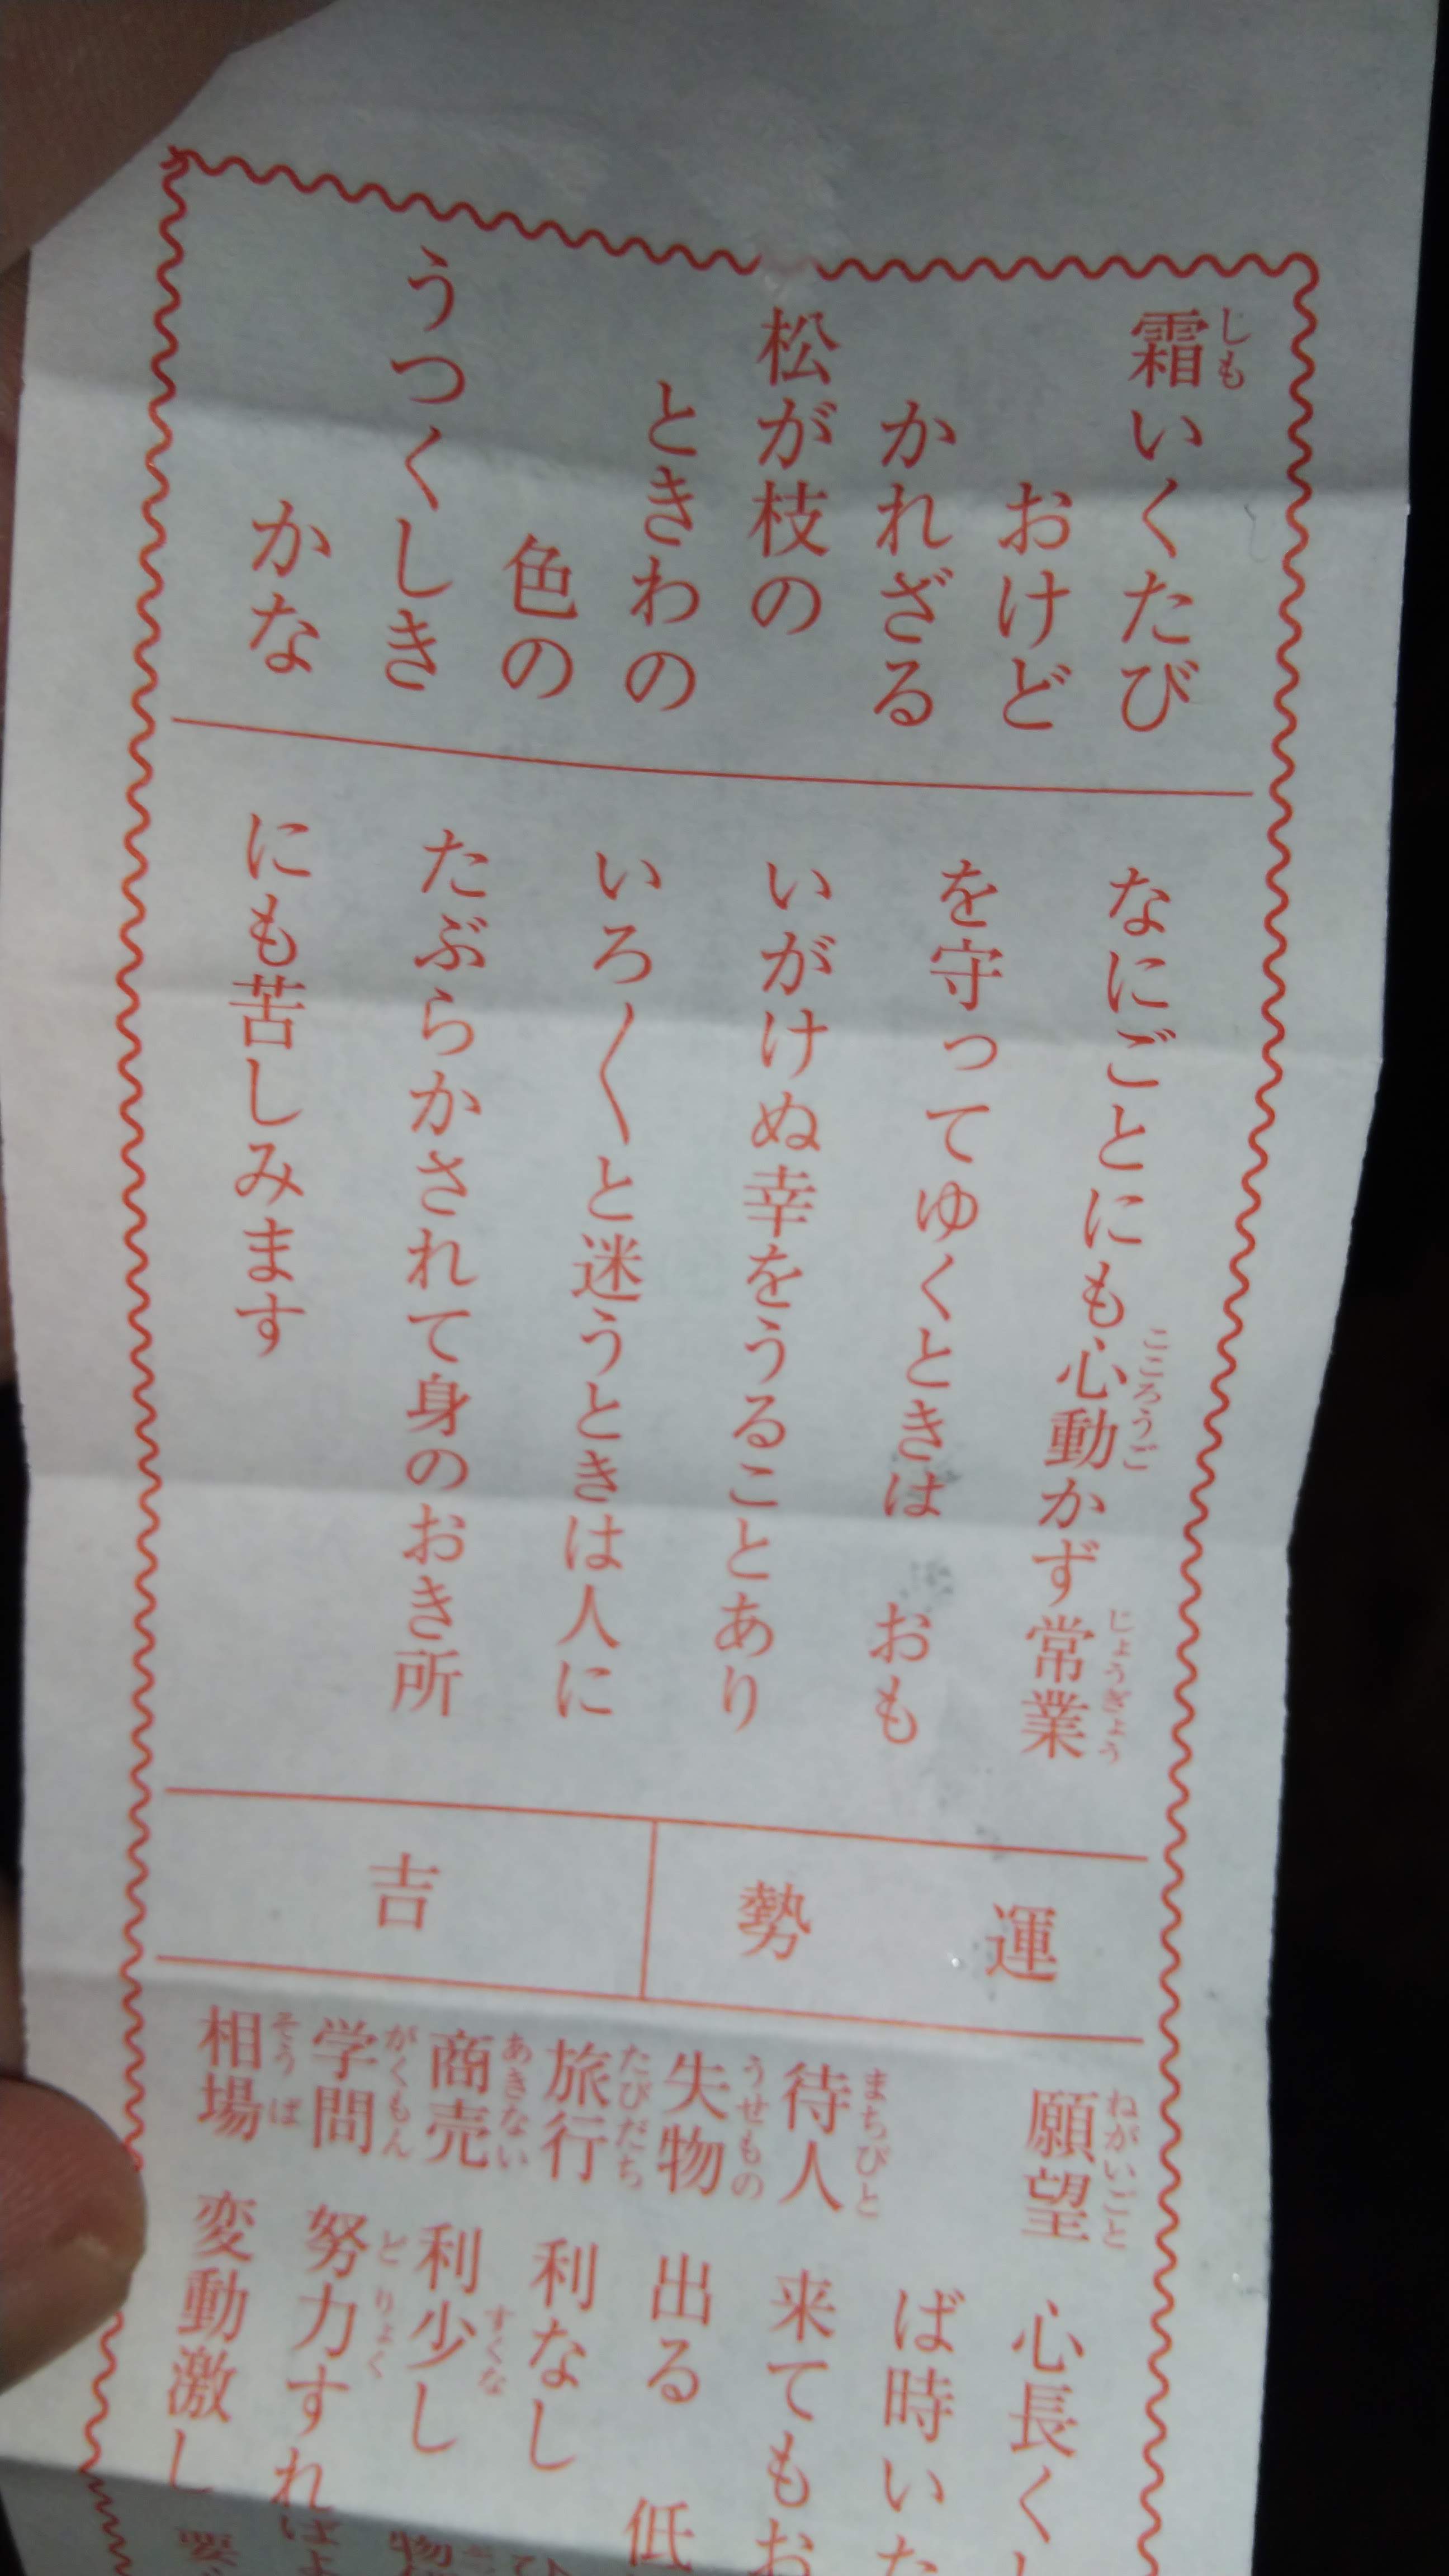 霜いくたび
おけど
かれざる
松が枝の
ときわの
色の
うつくしき
かな
なにごとにも心動かず常業
を守ってゆくときは おも
いがけぬ幸をうることあり
いろ〱と迷うときは人に
たぶらかされて身のおき所
にも苦しみます
運勢
吉
願望 心長く
ば時いた
待人 来てもお
失物 出る 低
旅行 利なし
商売 利少し
学問 努力すれば
相場 変動激し